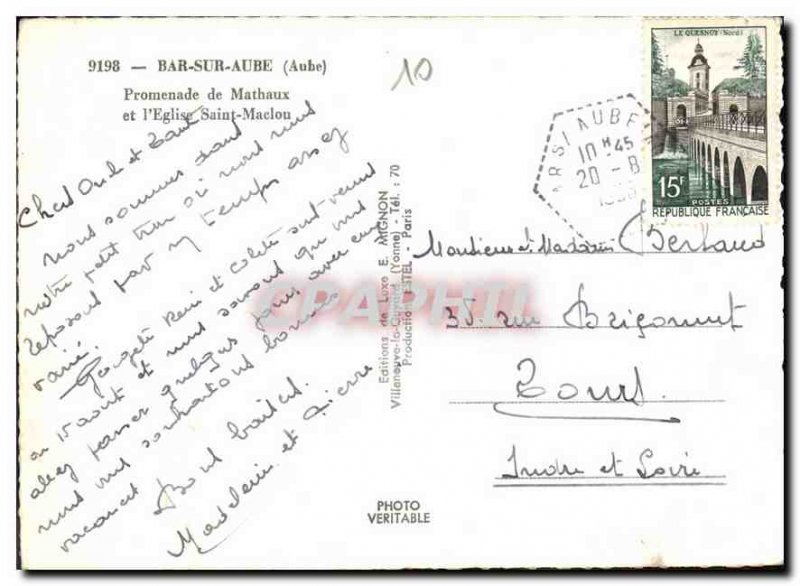 9198 — BAR-SUR-AUBE (Aube)
Promenade de Mathaux
et l'Eglise Saint-Maclou
10
LE QUESNOY (Nord)
15F
POSTES
REPUBLIQUE FRANÇAISE
AUBE
10 H 45
20 - 8
nous sommes dans
notre petit où nous nous
reposons par un temps assez
varié. et Colette sont venus
au 15 août et nous qui vont
passer quelques jours avec eux
nous vous souhaitons bonnes
vacances
Bons baisers.
Madeleine et Pierre
Editions de Luxe E. MIGNON
Villeneuve-la-Guyard (Yonne) - Tél. : 70
Production ESTEL - Paris
CPAPHIL
Monsieur et Madame Bertaud
35 rue Brigonnet
Tours
Indre et Loire
PHOTO
VERITABLE